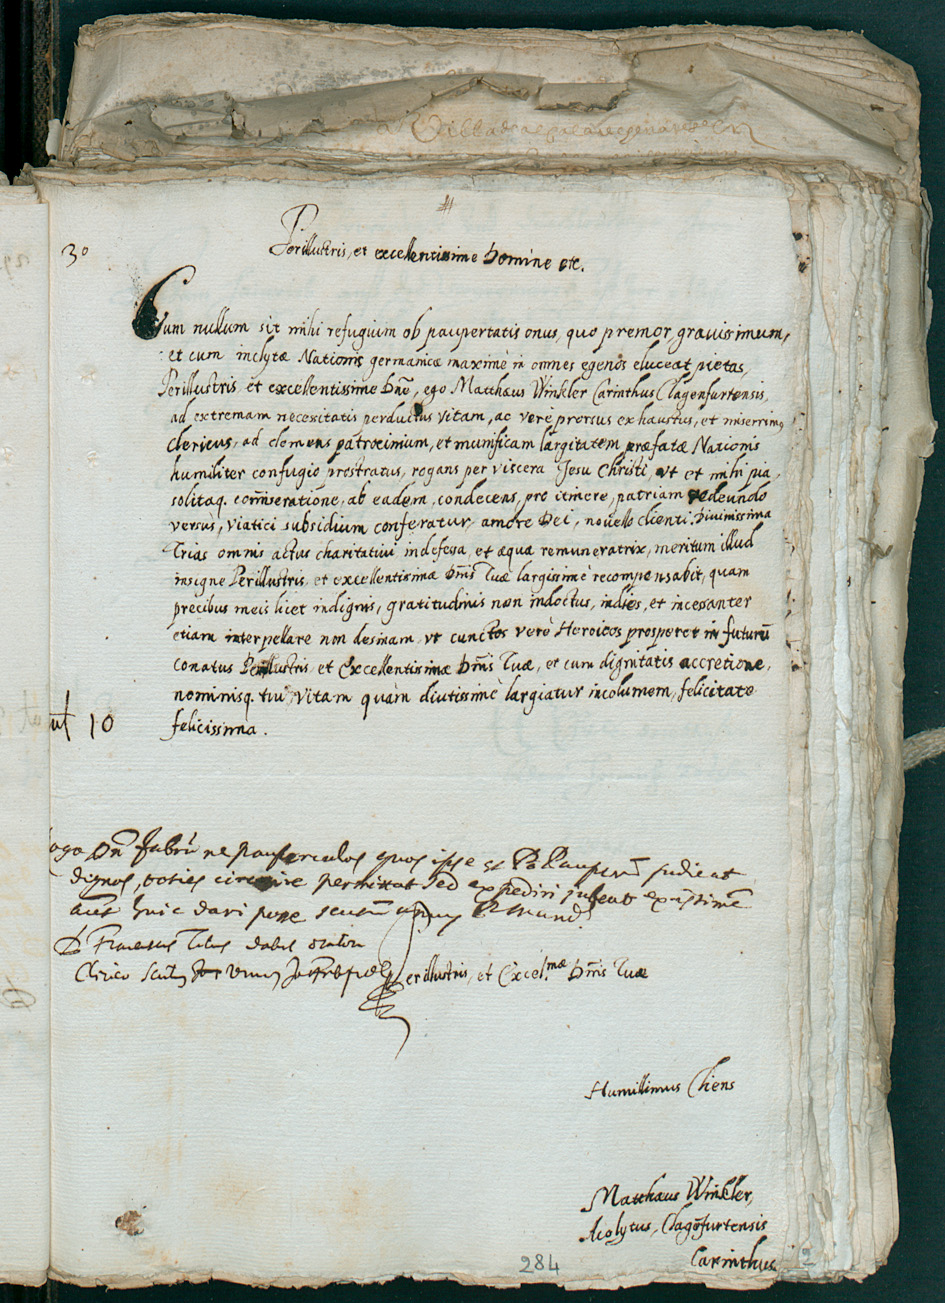 30
Perillustris, et excellentissime Domine etc.
Cum nullum sit mihi refugium ob paupertatis onus, quo premor, grauissimum,
et cum inclytæ Nationis germanicæ maximè in omnes egenos eluceat pietas,
Perillustris, et excellentissime Dñe, ego Matthæus Winkler Carinthus Clagenfurtensis,
ad extremam necessitatis perductus vitam, ac verè prorsus exhaustus, et miserrimus
clericus, ad clemens patrocinium, et munificam largitatem præfatæ Nationis
humiliter confugio prostratus, rogans per viscera Jesu Christi, vt et mihi pia,
solitaq. com̃iseratione, ab eadem, condecens, pro itinere, patriam redeundo
versùs, viatici subsidium conferatur amore Dei, nouello clienti. Diuinissima
Trias omnis actus charitatiui indefessa, et æqua remuneratrix, meritum illud
insigne Perillustris, et excellentissimæ Dñis Tuæ largissimè recompensabit, quam
precibus meis licet indignis, gratitudinis non indoctus, indies, et incessanter
etiam interpellare non desinam, vt cunctos verò Heroicos prosperet in futurũ
conatus Perillustris, et Excellentissimæ Dñis Tuæ, et cum dignitatis accretione,
nominisq. tui, vitam quàm diutissimè largiatur incolumem, felicitate
felicissima.
10
Dñ Fabrũ ne pauperculos quos ipse
dignos, toties circuire permittat sed expediri jubeat
huic dari posse scutum
dabit
Clerico
Perillustris, et Excel.mæ Dñis Tuæ
Humillimus Cliens
Matthæus Winkler,
Acolytus, Clagẽfurtensis
Carinthus.
284
2